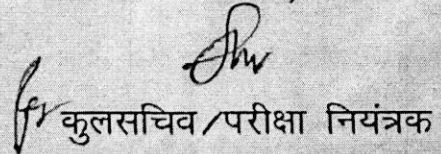 for कुलसचिव/परीक्षा नियंत्रक